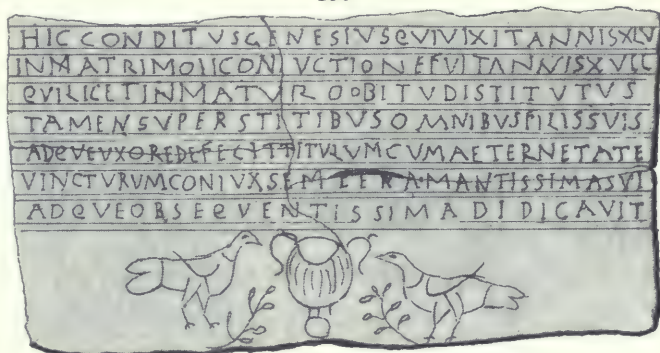 HIC CONDITVS GENESIVS QVI VIXIT ANNIS XLV
IN MATRIMOIICONVCTIONE FVIT ANNVIS XVLL
QVI LICET IN MATVRO OBITV DISTITVTVS
TAMEN SVPERSTITIBVS OMNIBVS FILIS SVIS
ADQVE VXORE DEFECIT TITVLVM CVM AETERNETATE
VINCTVRVM CONIVX SEMLER AMANTISSIMA SVI
ADQVE OBSEQVENTISSIMA DIDICAVIT